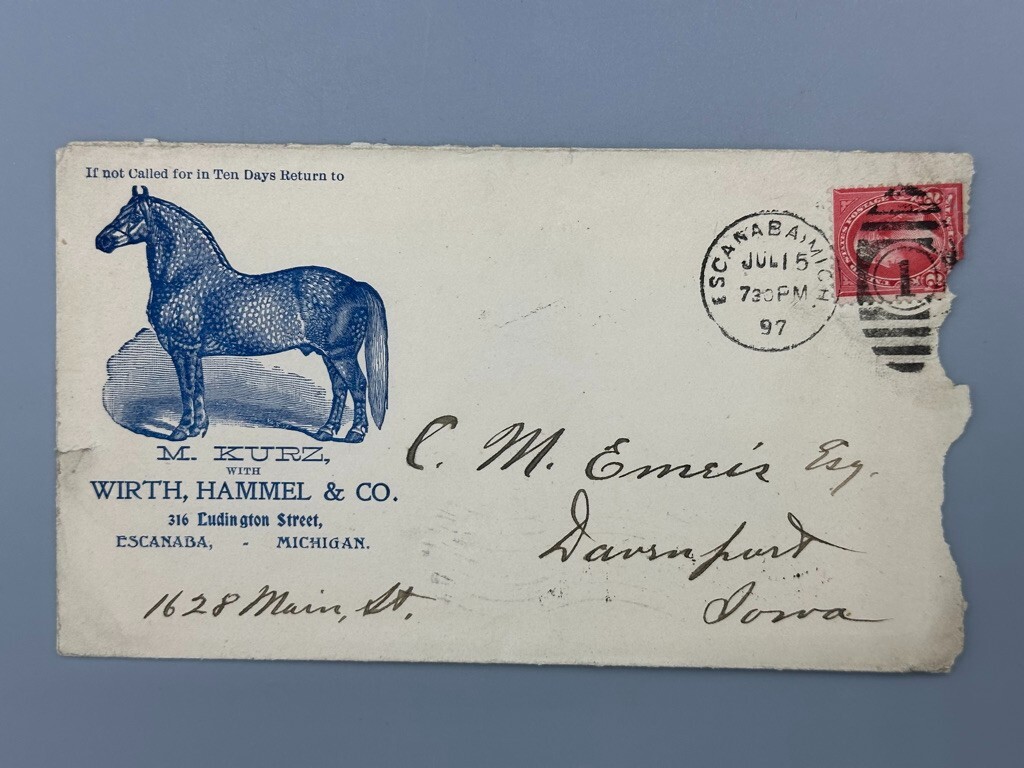 If not Called for in Ten Days Return to
M. KURZ,
WITH
WIRTH, HAMMEL & CO.
316 Ludington Street,
ESCANABA, - MICHIGAN.
ESCANABA, MICH
JUL 15
730 PM
97
C. M. Emeis Esq.
Davenport
Iowa
1628 Main, St.